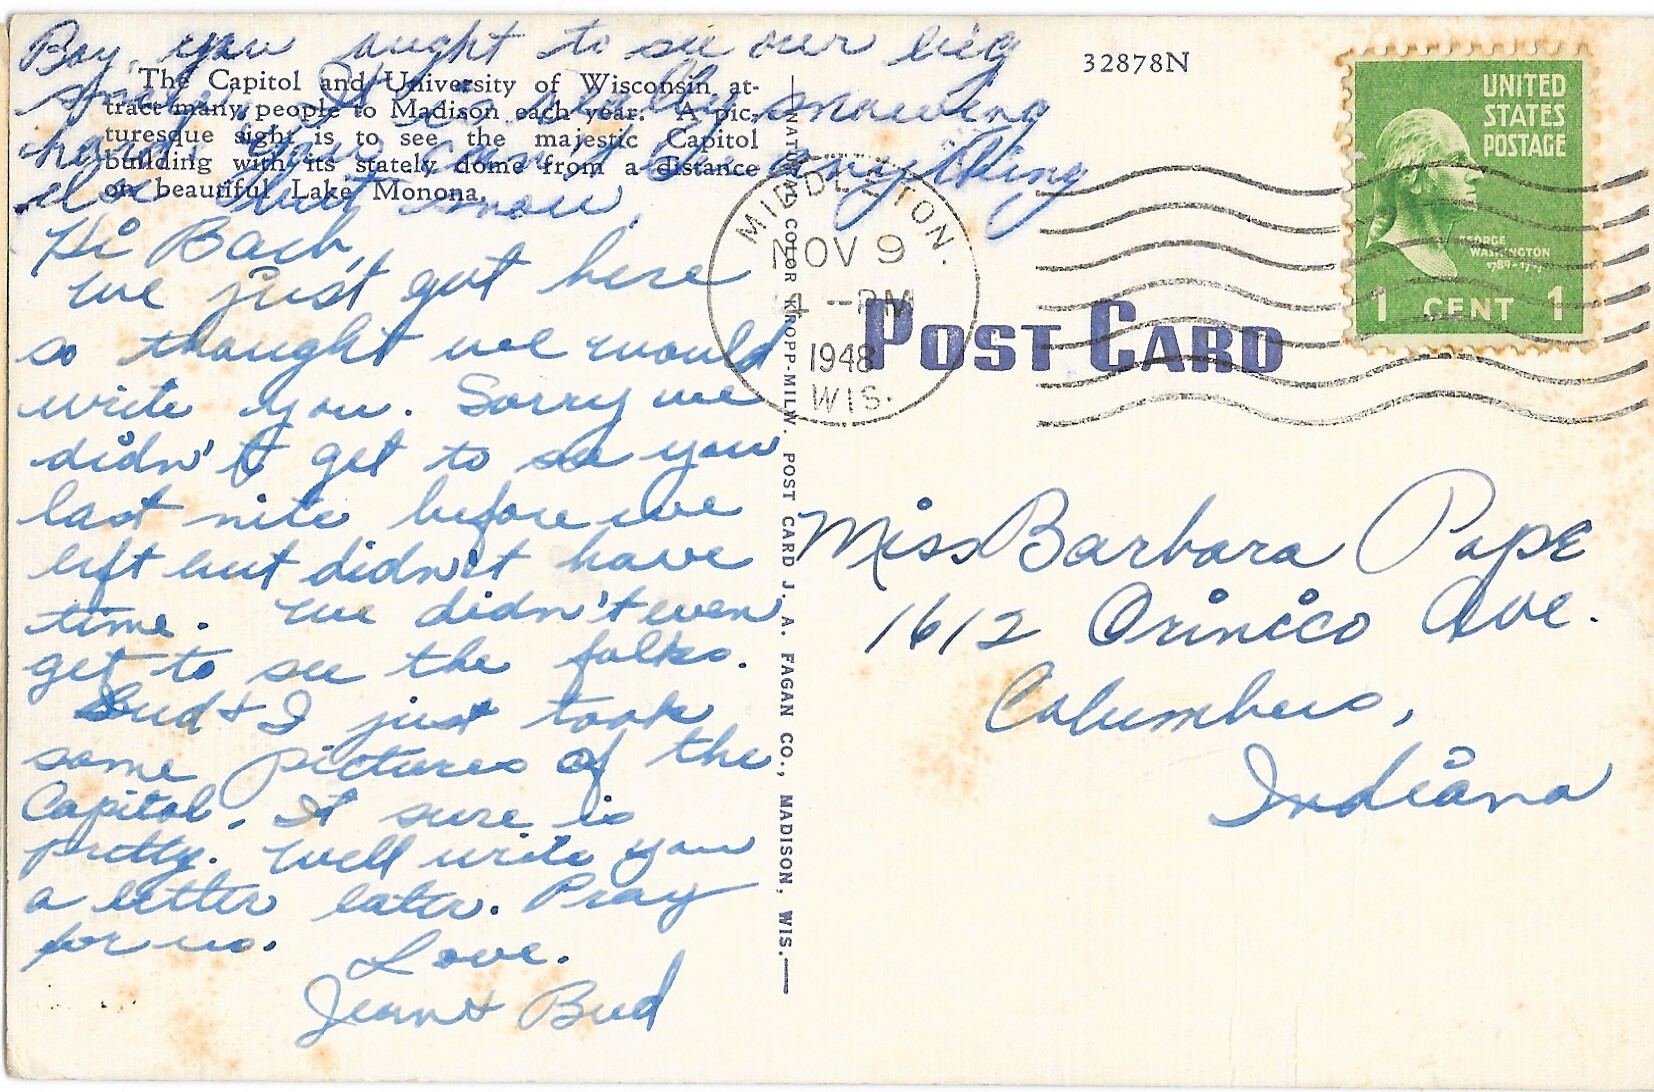 Boy, you ought to see our big
smiles. It is really snowing
hard. You can't see anything
else but snow.
The Capitol and University of Wisconsin at-
tract many people to Madison each year. A pic-
turesque sight is to see the majestic Capitol
building with its stately dome from a distance
on beautiful Lake Monona.
Hi Barb,
We just got here
so thought we would
write you. Sorry we
didn't get to see you
last nite before we
left but didn't have
time. We didn't even
get to see the folks.
Bud & I just took
some pictures of the
Capitol. It sure is
pretty. Well write you
a letter later. Pray
for us.
Love.
Jean & Bud
NATIONAL COLOR KROPP-MILW. POST CARD J. A. FAGAN CO., MADISON, WIS.
32878N
MIDDLETON.
NOV 9
4 -PM
1948
WIS.
POST CARD
UNITED
STATES
POSTAGE
GEORGE
WASHINGTON
1789-1797
1 CENT 1
Miss Barbara Pape
1612 Orinico Ave.
Columbus,
Indiana